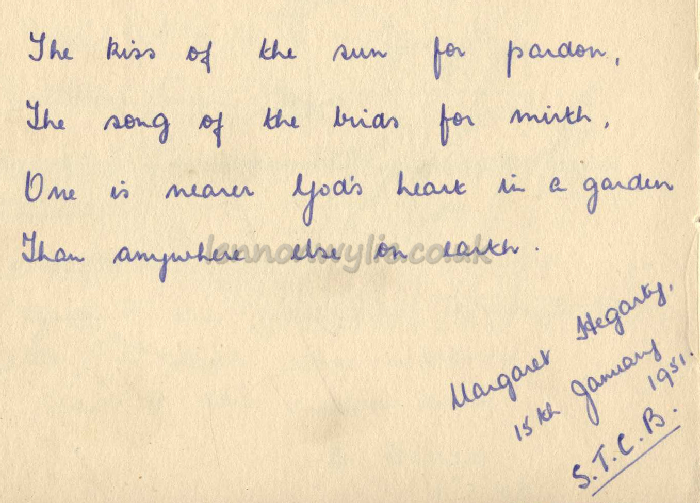 The kiss of the sun for pardon,
The song of the brids for mirth,
One is nearer God's heart in a garden
Than anywhere else on earth.
lennonwylie.co.uk
Margaret Hegarty,
15th January 1951.
S.T.C.B.